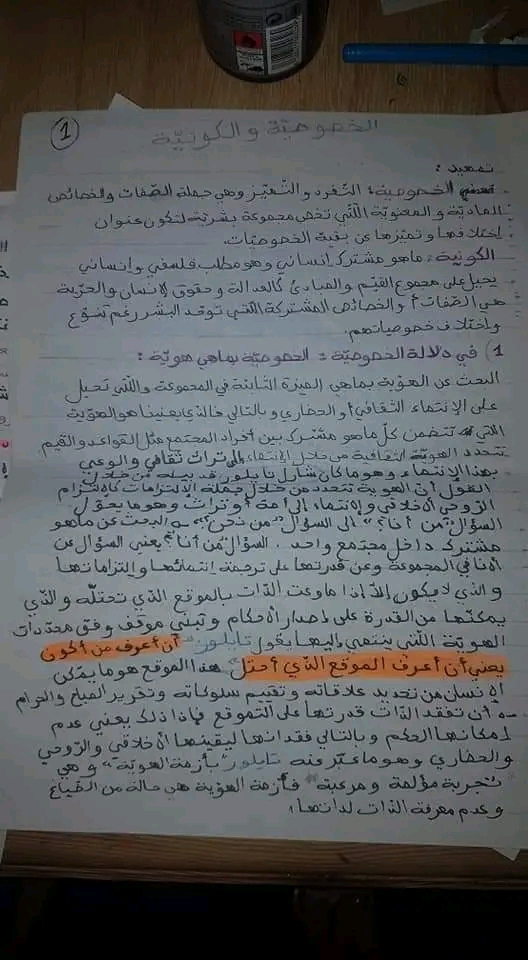 1
الخصوصيّة والكونيّة
تمهيد :
تعني الخصوصية: التّفرد والتّميّز وهي جملة الصّفات والخصائص
الماديّة والمعنويّة اللّتي تخصّ مجموعة بشريّة لتكون عنوان
إختلافها وتميّزها عن بقية الخصوصيّات.
الكونيّة: ماهو مشترك إنساني وهو مطلب فلسفي وإنساني
يحيل على مجموع القيم والمبادئ كالعدالة وحقوق الإنسان والحريّة
هي الصّفات أو الخصائص المشتركة اللتي توحّد البشر رغم تنوّع
واختلاف خصوصياتهم.
1) في دلالة الخصوصيّة : الخصوصيّة بماهي هويّة :
البحث عن الهويّة بماهي الميزة الثّابتة في المجموعة واللّتي تحيل
على الإنتماء الثّقافي أو الحضاري وبالتالي فالذي يعنينا هو الهويّة
اللتي تتضمن كلّ ماهو مشترك بين أفراد المجتمع مثل القواعد والقيم
تتحدد الهويّة الثقافية من خلال الإنتماء إلى تراث ثقافي والوعي
بهذا الإنتماء وهو ما كان شارل تايلور قد من خلال
القول أنّ الهوية تتحدد من خلال جملة الإلتزامات كالإلتزام
الرّوحي أو الأخلاقي والإنتماء إلى أمة أو تراث وهو ما يحوّل
السؤال "من أنا؟" إلى السؤال "من نحن؟" البحث عن ماهو
مشترك داخل مجتمع واحد. السؤال من أنا؟ يعني السؤال عن
الأنا في المجموعة وعن قدرتها على ترجمة إنتمائها وإلتزاماتها
والذي لا يكون إلاّ إذا ما وعت الذّات بالموقع الذي تحتلّه والذي
يمكّنها من القدرة على إصدار الأحكام وتبني موقف وفق محدّدات
الهويّة اللّتي ينتهي إليها يقول تايلور: "أن أعرف من أكون
يعني أن أعرف الموقع الذّي أحتل" هذا الموقع هو ما يمكّن
الإنسان من تحديد علاقاته وتقييم سلوكاته وتقرير المباح والحرام
أن تفقد الذّات قدرتها على التّموقع فإذا ذلك يعني عدم
إمكانها الحكم وبالتالي فقدانها ليقينها الأخلاقي والرّوحي
والحضاري وهو ما عبّر عنه تايلور "بأزمة الهويّة" وهي
"تجربة مؤلمة ومرعبة" فأزمة الهويّة هي حالة من الضّياع
وعدم معرفة الذّات لذاتها.